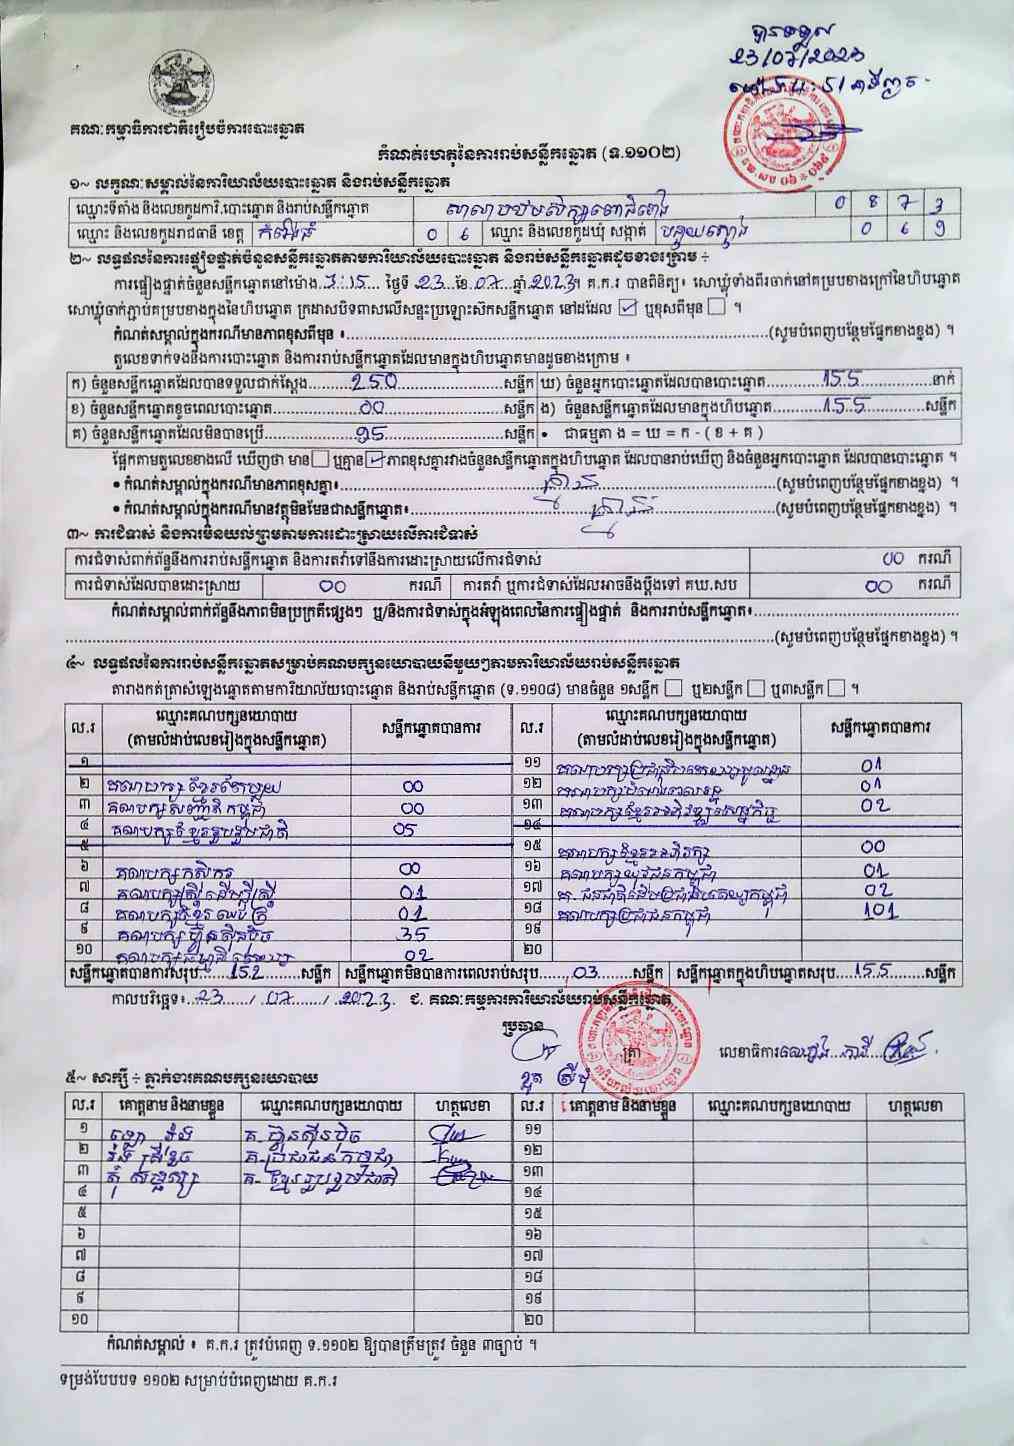 បានទទួល
23/07/2023
គណៈកម្មាធិការជាតិរៀបចំការបោះឆ្នោត
កំណត់ហេតុនៃការរាប់សន្លឹកឆ្នោត (ទ.១១០២)
១~ លក្ខណៈសម្គាល់នៃការិយាល័យបោះឆ្នោត និងរាប់សន្លឹកឆ្នោត
ឈ្មោះទីតាំង និងលេខកូដការិ.បោះឆ្នោត និងរាប់សន្លឹកឆ្នោត សាលាបឋមសិក្សា 0 8 7 3
ឈ្មោះ និងលេខកូដរាជធានី ខេត្ត កំពង់ធំ 0 6 ឈ្មោះ និងលេខកូដឃុំ សង្កាត់ 0 6 9
២~ លទ្ធផលនៃការផ្ទៀងផ្ទាត់ចំនួនសន្លឹកឆ្នោតតាមការិយាល័យបោះឆ្នោត និងរាប់សន្លឹកឆ្នោតដូចខាងក្រោម ÷
ការផ្ទៀងផ្ទាត់ចំនួនសន្លឹកឆ្នោតនៅម៉ោង.3:15... ថ្ងៃទី .23..ខែ.07...ឆ្នាំ.2023.។ គ.ក.រ បានពិនិត្យ៖ សោឃ្លុំទាំងពីរចាក់នៅគម្របខាងក្រៅនៃហិបឆ្នោត
សោឃ្លុំចាក់ភ្ជាប់គម្របខាងក្នុងនៃហិបឆ្នោត ក្រដាសបិទពាសលើសន្ទះប្រឡោះស៊កសន្លឹកឆ្នោត នៅដដែល ☑ ឬខុសពីមុន ☐ ។
កំណត់សម្គាល់ក្នុងករណីមានភាពខុសពីមុន ៖.....(សូមបំពេញបន្ថែមផ្នែកខាងខ្នង) ។
តួលេខទាក់ទងនឹងការបោះឆ្នោត និងការរាប់សន្លឹកឆ្នោតដែលមានក្នុងហិបឆ្នោតមានដូចខាងក្រោម ៖
ក) ចំនួនសន្លឹកឆ្នោតដែលបានទទួលជាក់ស្តែង.....250.....សន្លឹក ឃ) ចំនួនអ្នកបោះឆ្នោតដែលបានបោះឆ្នោត.....155.....នាក់
ខ) ចំនួនសន្លឹកឆ្នោតខូចពេលបោះឆ្នោត.....00.....សន្លឹក ង) ចំនួនសន្លឹកឆ្នោតដែលមានក្នុងហិបឆ្នោត.....155.....សន្លឹក
គ) ចំនួនសន្លឹកឆ្នោតដែលមិនបានប្រើ.....95.....សន្លឹក • ជាធម្មតា ង = ឃ = ក - ( ខ + គ )
ផ្អែកតាមតួលេខខាងលើ ឃើញថា មាន ☐ ឬគ្មាន ☑ ភាពខុសគ្នារវាងចំនួនសន្លឹកឆ្នោតក្នុងហិបឆ្នោត ដែលបានរាប់ឃើញ និងចំនួនអ្នកបោះឆ្នោត ដែលបានបោះឆ្នោត ។
• កំណត់សម្គាល់ក្នុងករណីមានភាពខុសគ្នា៖.....គ្មាន.....(សូមបំពេញបន្ថែមផ្នែកខាងខ្នង) ។
• កំណត់សម្គាល់ក្នុងករណីមានវត្ថុមិនមែនជាសន្លឹកឆ្នោត៖.....គ្មាន.....(សូមបំពេញបន្ថែមផ្នែកខាងខ្នង) ។
៣~ ការជំទាស់ និងការមិនយល់ព្រមតាមការដោះស្រាយលើការជំទាស់
ការជំទាស់ពាក់ព័ន្ធនឹងការរាប់សន្លឹកឆ្នោត និងការតវ៉ាទៅនឹងការដោះស្រាយលើការជំទាស់ 00 ករណី
ការជំទាស់ដែលបានដោះស្រាយ 00 ករណី ការតវ៉ា ឬការជំទាស់ដែលអាចនឹងប្តឹងទៅ គឃ.សប 00 ករណី
កំណត់សម្គាល់ពាក់ព័ន្ធនឹងភាពមិនប្រក្រតីផ្សេងៗ ឬ/និងការជំទាស់ក្នុងអំឡុងពេលនៃការផ្ទៀងផ្ទាត់ និងការរាប់សន្លឹកឆ្នោត៖.....
.....(សូមបំពេញបន្ថែមផ្នែកខាងខ្នង) ។
៤~ លទ្ធផលនៃការរាប់សន្លឹកឆ្នោតសម្រាប់គណបក្សនយោបាយនីមួយៗតាមការិយាល័យរាប់សន្លឹកឆ្នោត
តារាងកត់ត្រាសំឡេងឆ្នោតតាមការិយាល័យបោះឆ្នោត និងរាប់សន្លឹកឆ្នោត (ទ.១១០៨) មានចំនួន ១សន្លឹក ☐ ឬ២សន្លឹក ☐ ឬ៣សន្លឹក ☐ ។
ល.រ ឈ្មោះគណបក្សនយោបាយ សន្លឹកឆ្នោតបានការ ល.រ ឈ្មោះគណបក្សនយោបាយ សន្លឹកឆ្នោតបានការ
(តាមលំដាប់លេខរៀងក្នុងសន្លឹកឆ្នោត) (តាមលំដាប់លេខរៀងក្នុងសន្លឹកឆ្នោត)
១ ១១ 01
២ 00 ១២ 01
៣ គណបក្សសញ្ជាតិកម្ពុជា 00 ១៣ គណបក្សខ្មែរអភិវឌ្ឍន៍សេដ្ឋកិច្ច 02
៤ គណបក្សខ្មែររួបរួមជាតិ 05 ១៤
៥ ១៥ គណបក្សខ្មែរអភិរក្ស 00
៦ គណបក្សកសិករ 00 ១៦ គណបក្សយុវជនកម្ពុជា 01
៧ គណបក្សស្ត្រីដើម្បីស្ត្រី 01 ១៧ គ. ជនជាតិដើមប្រជាធិបតេយ្យកម្ពុជា 02
៨ គណបក្សខ្មែរឈប់ក្រ 01 ១៨ គណបក្សប្រជាជនកម្ពុជា 101
៩ គណបក្សហ្វ៊ុនស៊ិនប៉ិច 35 ១៩
១០ គណបក្សធម្មាធិបតេយ្យ 02 ២០
សន្លឹកឆ្នោតបានការសរុប.....152.....សន្លឹក សន្លឹកឆ្នោតមិនបានការពេលរាប់សរុប.....03.....សន្លឹក សន្លឹកឆ្នោតក្នុងហិបឆ្នោតសរុប....155.....សន្លឹក
កាលបរិច្ឆេទ៖..23...../..07...../...2023 ជ. គណៈកម្មការការិយាល័យរាប់សន្លឹកឆ្នោត
ប្រធាន
ត្រា លេខាធិការ
៥~ សាក្សី ÷ ភ្នាក់ងារគណបក្សនយោបាយ
ល.រ គោត្តនាម និងនាមខ្លួន ឈ្មោះគណបក្សនយោបាយ ហត្ថលេខា ល.រ គោត្តនាម និងនាមខ្លួន ឈ្មោះគណបក្សនយោបាយ ហត្ថលេខា
១ គ. ហ្វ៊ុនស៊ិនប៉ិច ១១
២ គ. ប្រជាជនកម្ពុជា ១២
៣ គ. ខ្មែររួបរួមជាតិ ១៣
៤ ១៤
៥ ១៥
៦ ១៦
៧ ១៧
៨ ១៨
៩ ១៩
១០ ២០
កំណត់សម្គាល់ ៖ គ.ក.រ ត្រូវបំពេញ ទ.១១០២ ឱ្យបានត្រឹមត្រូវ ចំនួន ៣ច្បាប់ ។
ទម្រង់បែបបទ ១១០២ សម្រាប់បំពេញដោយ គ.ក.រ